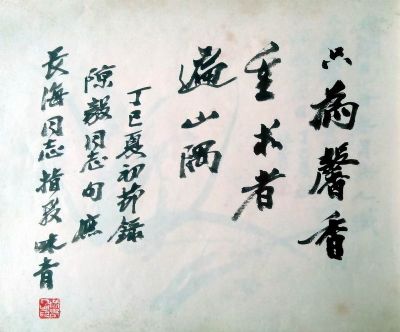 只為馨香
重求者
遍山隅
丁巳夏初節錄
陳毅同志句應
長海同志指教 味青